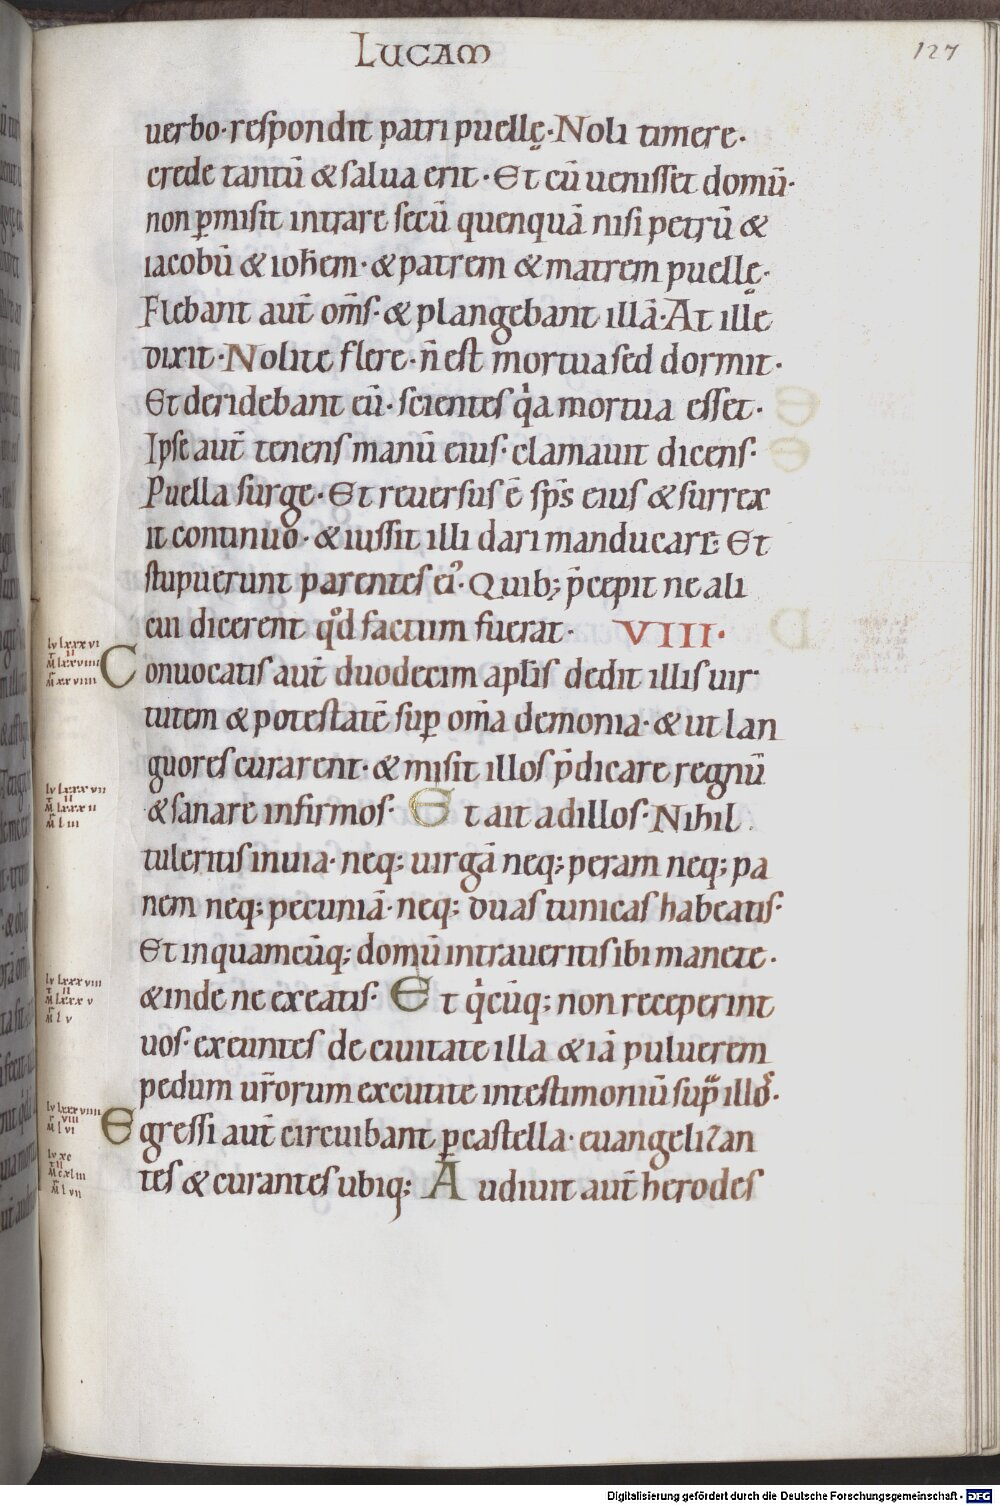 LUCAM
127
uerbo· respondit patri puellę· Noli timere·
crede tantū & salua erit· Et cū uenisset domū·
non ꝑmisit intrare secū quenquā nisi petrū &
iacobū & ioħem· & patrem & matrem puellę·
Flebant aut̄ om̄s· & plangebant illā· At ille
dixit· Nolite flere· n̄ est mortua sed dormit·
Et deridebant eū· scientes qͥa mortua esset·
Ipse aut̄ tenens manū eius· clamauit dicens·
Puella surge· Et reuersus ē sp̄s eius & surrex
it continuo· & iussit illi dari manducare· Et
stupuerunt parentes ei᾿· Quib; p̄cepit ne ali
cui dicerent qͦd factum fuerat· VIII·
Conuocatis aut̄ duodecim apl̄is dedit illis uir
tutem & potestatē suꝑ om̄a demonia· & ut lan
guores curarent· & misit illos p̄dicare regnū
& sanare infirmos· Et ait ad illos· Nihil
tuleritis in uia· neq; uirgā neq; peram neq; pa
nem neq; pecuniā· neq; duas tunicas habeatis·
Et in quamcūq; domū intraueritis ibi manete·
& inde ne exeatis· Et qͥcūq; non receperint
uos· exeuntes de ciuitate illa &iā puluerem
pedum ur̄orum excutite in testimoniū supᷓ illoᷣ·
Egressi aut̄ circuibant ꝑ castella· euangelizan
tes & curantes ubiq; Audiuit aut̄ herodes
Digitalisierung gefördert durch die Deutsche Forschungsgemeinschaft - DFG